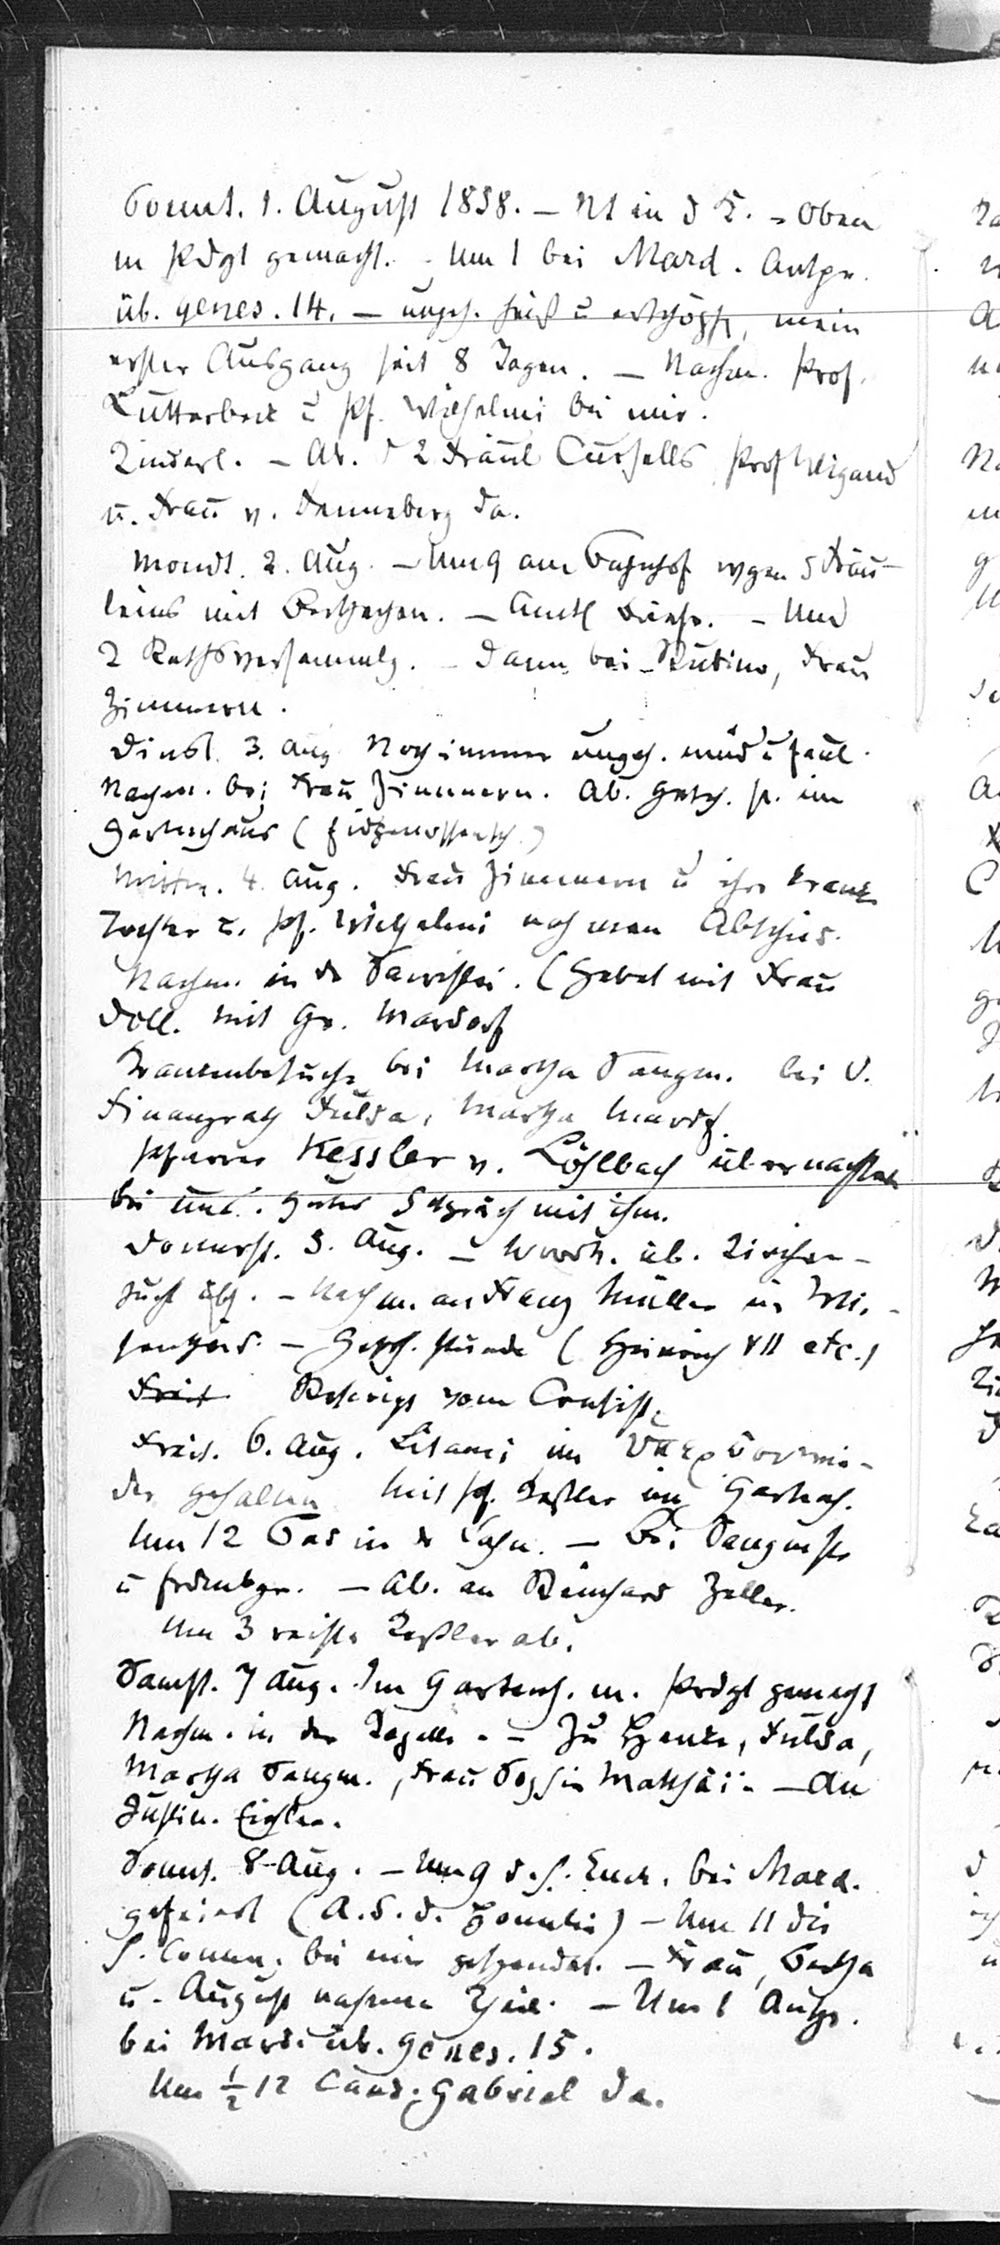 Sonnt. 1. August 1858. – Nt in d K. – Oben
m Prdgt gemacht. – Um 1 bei Mard. Anspr.
üb. genes. 14. – ungeh. heiß u erschöpft, mein
erster Ausgang seit 8 Tagen. – Nachm. Prof.
Lutterbeck u Pf. Wilhelmi bei mir.
Kinderl. – Ab. d 2 Fräul Cursells Prof Weigand
u. Frau v. Danneberg da.
Mondt. 2. Aug. – Um 9 am Bahnhof wgen 5 Fräu-
leins mit – Um
2 Rathsversammlg. – Dann bei Rubino, Frau
Zimmern.
Dinst. 3. Aug Noch immer ungeh. müd u faul.
Nachm. bei Frau Zimmern. Ab. Gesch. st. im
Gartenhaus (Eidgenossensch.)
Mittw. 4. Aug. Frau Zimmern u ihre kranke
Tochter u. Pf. Wilhelmi nahmen Abschied.
Nachm. in der Sacristei. (Gebet mit Frau
Doll. mit Gr. Mardorf
Krankenbesuche bei Martha Tangm. bei O.
Finanzrath Fulda, Martha Mardf.
Pfarrer Kessler v. Löhlbach übernachtete
bei uns. Gutes Gespräch mit ihm.
Donnerst. 5. Aug. – Vorm. üb. Kirchen-
zucht – Nachm. an Franz Müller in Wei-
senheid. – Gesch. stunde (Heinrich VII etc.)
Rescript vom Consist.
Freit. 6. Aug. Litanei im
der gehalten Mit Pf. Keßler im Gartenh.
Um 12 Bad in der Lahn. – Bei
u – Ab. an Reinhard Zeller.
Um 3 reiste Keßler ab.
Samst. 7 Aug. Im Gartenh. m. Prdgt gemacht
Nachm. in der Kapelle. – Zu Henke, Fulda,
Martha Tangm., Frau Matthäi. – An
Justin.
Sonnt. 8 Aug. – Um 9 d. h. Euch. bei Mard.
gefeiert (A. S. d. Homilie) – Um 11 die
h. Comm. bei mir gespendet. – Frau, Bertha
u. August nahmen Theil. – Um 1 Anspr.
bei Mard. üb. Genes. 15.
Um ½ 12 Cand. Gabriel da.